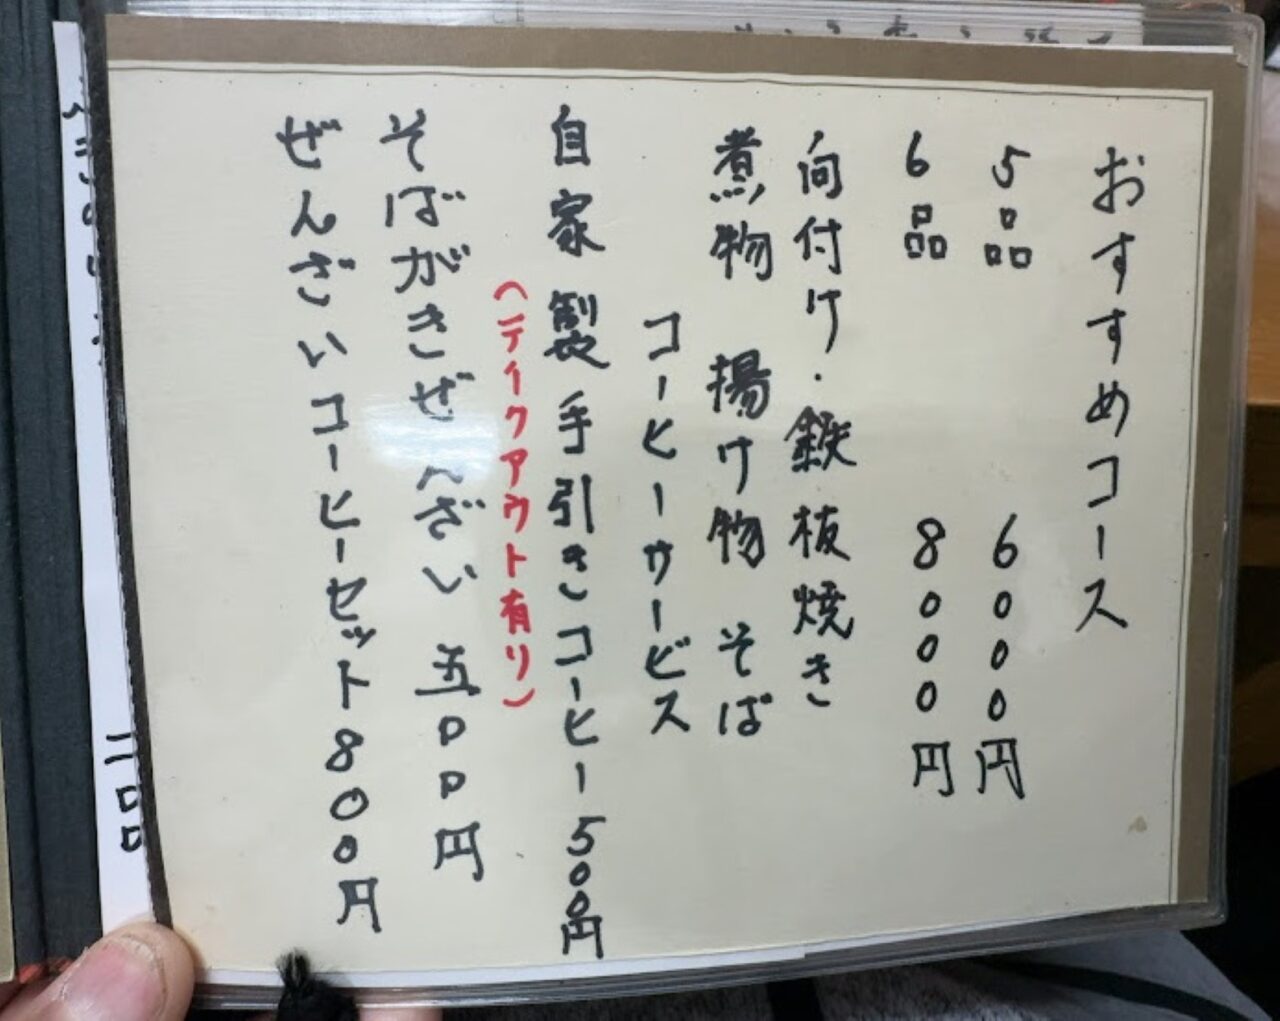 おすすめコース
5品 6000円
6品 8000円
向付け・鉄板焼き
煮物 揚げ物 そば
コーヒーサービス
自家製手引きコーヒー500円
(テイクアウト有り)
そばがきぜんざい 五〇〇円
ぜんざいコーヒーセット800円